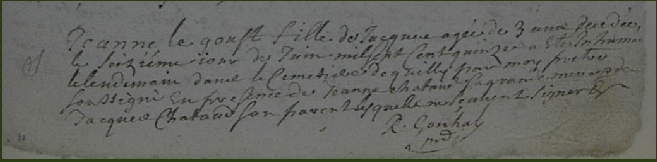 Jeanne le goust fille de Jacques agée de 3 ans decedée
le seizième iour de Juin mil sept cent quinze a eté inhumée
le lendemain dans le Cemetiere de par moy pretre
soussigné En presence de Jeanne sa grande mere et de
Jacques son parent lesquels ne sçavent signer
R. Gouhay